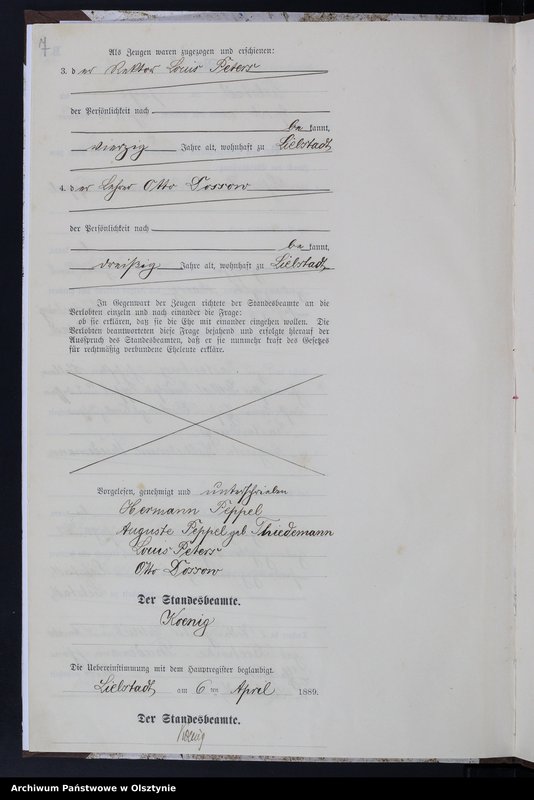 7
Als Zeugen waren zugezogen und erschienen:
3. der Rektor Louis Peters
der Persönlichkeit nach
bekannt,
vierzig Jahre alt, wohnhaft zu Liebstadt
4. der Lehrer Otto Dossow
der Persönlichkeit nach
bekannt,
dreißig Jahre alt, wohnhaft zu Liebstadt
In Gegenwart der Zeugen richtete der Standesbeamte an die
Verlobten einzeln und nach einander die Frage:
ob sie erklären, daß sie die Ehe mit einander eingehen wollen. Die
Verlobten beantworteten diese Frage bejahend und erfolgte hierauf der
Ausspruch des Standesbeamten, daß er sie nunmehr kraft des Gesetzes
für rechtmäßig verbundene Eheleute erkläre.
Vorgelesen, genehmigt und unterschrieben
Hermann Peppel
Auguste Peppel geb Thiedemann
Louis Peters
Otto Dossow
Der Standesbeamte.
Koenig
Die Uebereinstimmung mit dem Hauptregister beglaubigt.
Liebstadt am 6 ten April 1889.
Der Standesbeamte.
Koenig
Archiwum Państwowe w Olsztynie